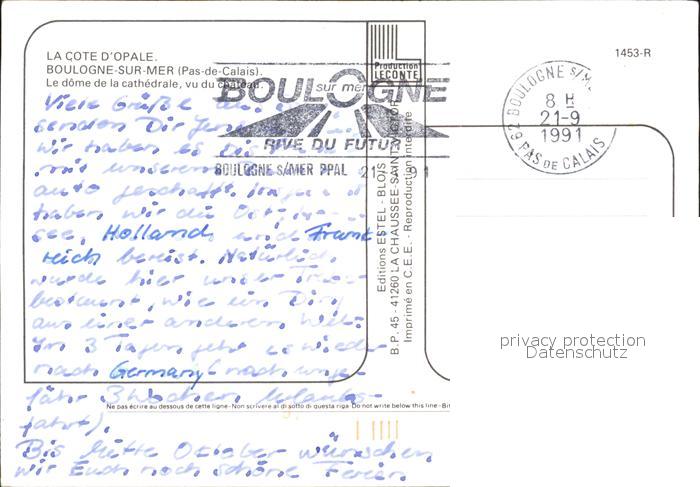 LA COTE D'OPALE.
BOULOGNE-SUR-MER (Pas-de-Calais).
Le dôme de la cathédrale, vu du château.
Production
LECONTE
1453-R
BOULOGNE
sur mer
RIVE DU FUTUR
BOULOGNE S/MER PPAL 21-9 91
62 BOULOGNE S/M
8 H
21-9
1991
PAS DE CALAIS
Viele Grüße
senden Dir
wir haben es
mit unserem
auto geschafft.
haben wir die
see, Holland und Frank-
reich bereist. Natürlich
wurde hier unser
bestaunt, wie ein Ding
aus einer anderen Welt.
Im 3 Tagen geht es wieder
nach Germany (nach unge-
fähr 3 Wochen Urlaubs-
fahrt).
Bis Mitte Oktober wünschen
wir Euch noch schöne Ferien.
Editions ESTEL - BLOIS
B.P. 45 - 41260 LA CHAUSSEE-SAINT-VICTOR
Imprimé en C.E.E. - Reproduction interdite
Ne pas écrire au dessous de cette ligne - Non scrivere al di sotto di questa riga Do not write below this line - Bit
privacy protection
Datenschutz